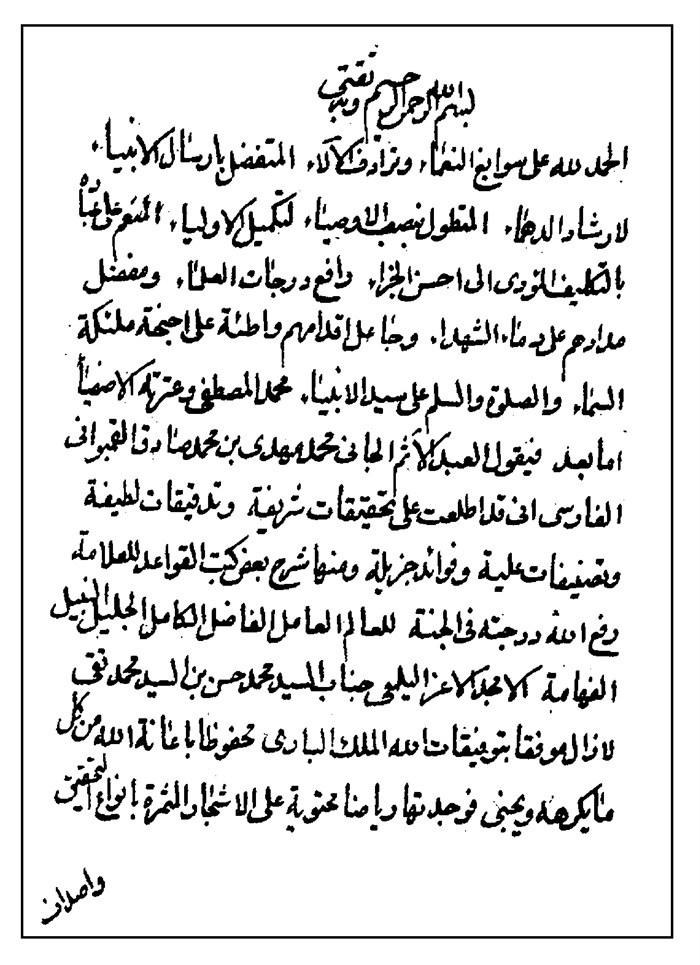 بسم الله الرحمن الرحيم وبه ثقتي
الحمد لله على سوابغ النعماء وترادف الآلاء المتفضل بارسال الانبياء
لارشاد الدهماء المتطول بنصب الاوصياء لتكميل الاولياء المنعم على عباده
بالتكليف المؤدى الى احسن الجزاء رافع درجات العلماء ومفضل
مدادهم على دماء الشهداء وجاعل اقدامهم واطئة على اجنحة ملئكة
السماء والصلوة والسلم على سيد الانبياء محمد المصطفى وعترته الاصفياء
اما بعد فيقول العبد الآثم الجانى محمد مهدى بن محمد صادق
الفارسى انى قد اطلعت على تحقيقات شريفة وتدقيقات لطيفة
وتصنيفات علية وفوائد جزيلة ومنها شرح بعض كتب القواعد للعلامة
رفع الله درجته فى الجنة للعالم العامل الفاضل الكامل الجليل النبيل
الفهامة الامجد الاعز اليلمعى جناب السيد محمد حسن بن السيد محمد تقى
لا زال موفقا بتوفيقات الله الملك البارى محفوظا باعانة الله من كل
ما يكرهه ويجنبى فوجدتها رياضا محتوية على الاشجار المثمرة بانواع التحقيق
واصداف